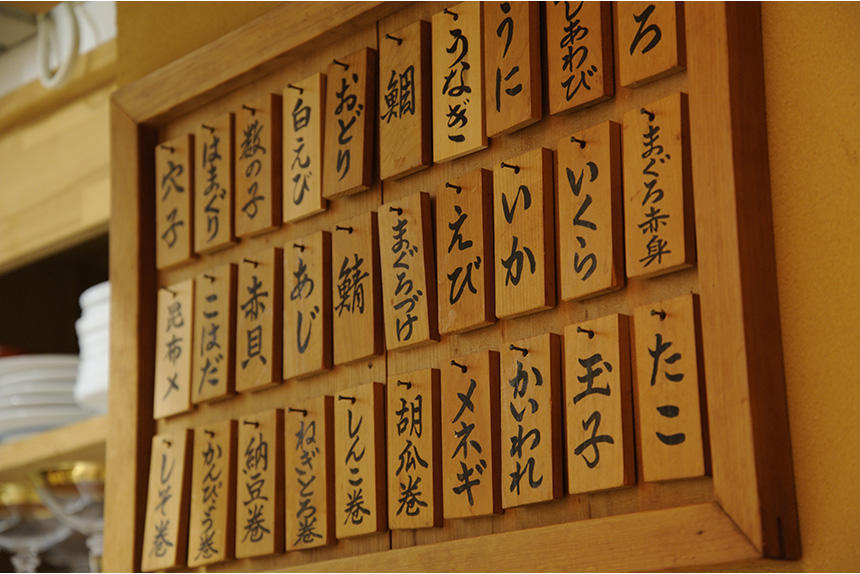 ろ
しあわび
うに
うなぎ
鯛
おどり
白えび
数の子
はまぐり
穴子
まぐろ赤身
いくら
いか
えび
まぐろづけ
鯖
あじ
赤貝
こはだ
昆布〆
たこ
玉子
かいわれ
メネギ
胡瓜巻
しんこ巻
ねぎとろ巻
納豆巻
かんぴょう巻
しそ巻